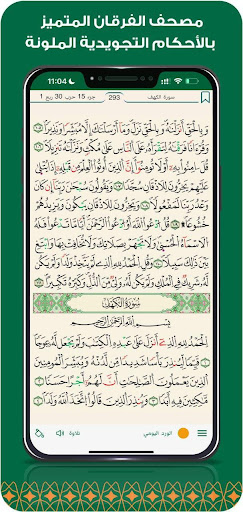 مصحف الفرقان المتميز
بالأحكام التجويدية الملونة
11:04
جزء 15 حزب 30 ربع 1
293
سورة الكهف
وَبِالْحَقِّ أَنزَلْنَٰهُ وَبِالْحَقِّ نَزَلَ وَمَا أَرْسَلْنَٰكَ إِلَّا مُبَشِّرًا وَنَذِيرًا ١٠٥
وَقُرْءَانًا فَرَقْنَٰهُ لِتَقْرَأَهُ عَلَى النَّاسِ عَلَىٰ مُكْثٍ وَنَزَّلْنَٰهُ تَنزِيلًا ١٠٦
قُلْ ءَامِنُوا بِهِ أَوْ لَا تُؤْمِنُوا إِنَّ الَّذِينَ أُوتُوا الْعِلْمَ مِن قَبْلِهِ إِذَا يُتْلَىٰ
عَلَيْهِمْ يَخِرُّونَ لِلْأَذْقَانِ سُجَّدًا ١٠٧ وَيَقُولُونَ سُبْحَٰنَ رَبِّنَا إِن كَانَ
وَعْدُ رَبِّنَا لَمَفْعُولًا ١٠٨ وَيَخِرُّونَ لِلْأَذْقَانِ يَبْكُونَ وَيَزِيدُهُمْ
خُشُوعًا ١٠٩ قُلِ ادْعُوا اللَّهَ أَوِ ادْعُوا الرَّحْمَٰنَ أَيًّا مَّا تَدْعُوا فَلَهُ
الْأَسْمَاءُ الْحُسْنَىٰ وَلَا تَجْهَرْ بِصَلَاتِكَ وَلَا تُخَافِتْ بِهَا وَابْتَغِ
بَيْنَ ذَٰلِكَ سَبِيلًا ١١٠ وَقُلِ الْحَمْدُ لِلَّهِ الَّذِي لَمْ يَتَّخِذْ وَلَدًا وَلَمْ يَكُن
لَّهُ شَرِيكٌ فِي الْمُلْكِ وَلَمْ يَكُن لَّهُ وَلِيٌّ مِّنَ الذُّلِّ وَكَبِّرْهُ تَكْبِيرًا ١١١
سُورَةُ الْكَهْفِ
بِسْمِ اللَّهِ الرَّحْمَٰنِ الرَّحِيمِ
الْحَمْدُ لِلَّهِ الَّذِي أَنزَلَ عَلَىٰ عَبْدِهِ الْكِتَٰبَ وَلَمْ يَجْعَل لَّهُ عِوَجَا ١
قَيِّمًا لِّيُنذِرَ بَأْسًا شَدِيدًا مِّن لَّدُنْهُ وَيُبَشِّرَ الْمُؤْمِنِينَ
الَّذِينَ يَعْمَلُونَ الصَّٰلِحَٰتِ أَنَّ لَهُمْ أَجْرًا حَسَنًا ٢
مَّٰكِثِينَ فِيهِ أَبَدًا ٣ وَيُنذِرَ الَّذِينَ قَالُوا اتَّخَذَ اللَّهُ وَلَدًا ٤
الورد اليومي
تلاوة